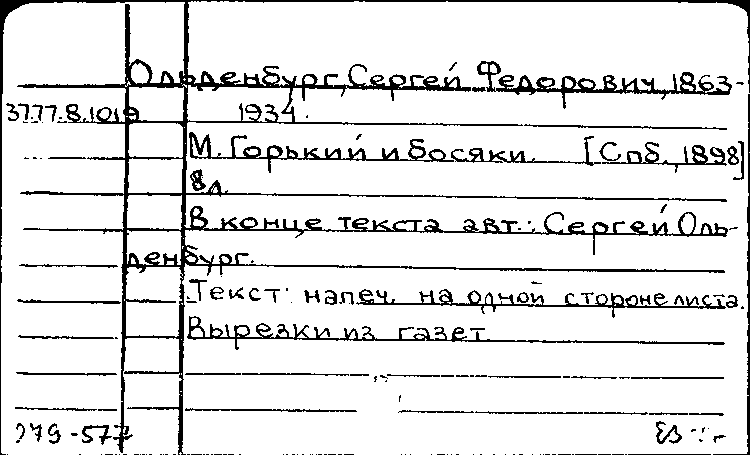 Ольденбург, Сергей Федорович, 1863-
3777.8.1019 1934.
М. Горький и босяки. [Спб., 1898]
8л.
В конце текста авт.: Сергей Оль-
денбург.
Текст напеч. на одной стороне листа.
Вырезки из газет
279-577